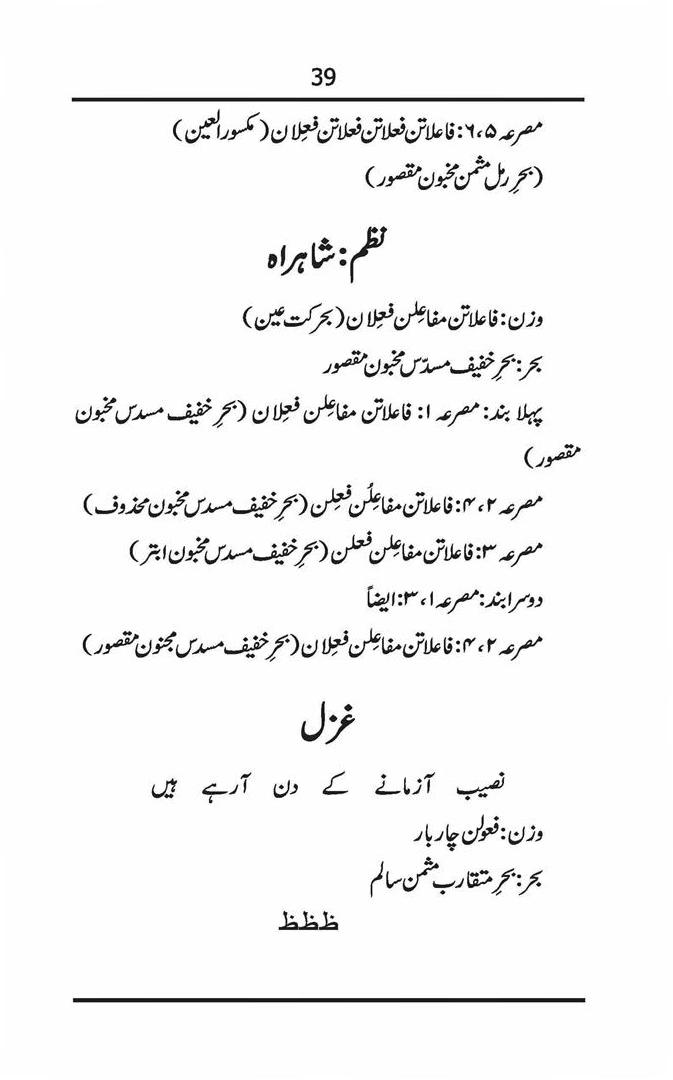 39
مصرعہ ۶،۵: فاعلاتن فعلاتن فعلاتن فعِلان (مکسور العین)
(بحرِ رمل مثمن مخبون مقصور)
نظم: شاہراہ
وزن: فاعلاتن مفاعِلن فعِلان (بحرکت عین)
بحر: بحرِ خفیف مسدّس مخبون مقصور
پہلا بند: مصرعہ ۱: فاعلاتن مفاعِلن فعِلان (بحرِ خفیف مسدس مخبون
مقصور)
مصرعہ ۴،۲: فاعلاتن مفاعِلُن فعِلن (بحرِ خفیف مسدس مخبون محذوف)
مصرعہ ۳: فاعلاتن مفاعِلن فعلن (بحرِ خفیف مسدس مخبون ابتر)
دوسرا بند: مصرعہ ۳،۱: ایضاً
مصرعہ ۴،۲: فاعلاتن مفاعِلن فعِلان (بحرِ خفیف مسدس مجنون مقصور)
غزل
نصیب آزمانے کے دن آرہے ہیں
وزن: فعولن چار بار
بحر: بحرِ متقارب مثمن سالم
ظظظ